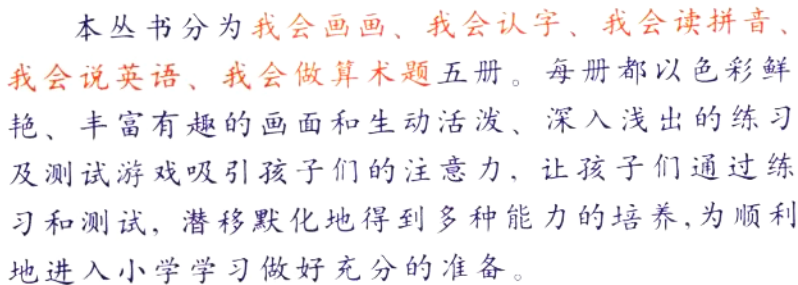 本丛书分为我会画画、我会认字、我会读拼音、
我会说英语、我会做算术题五册。每册都以色彩鲜
艳、丰富有趣的画面和生动活泼、深入浅出的练习
及测试游戏吸引孩子们的注意力,让孩子们通过练
习和测试,潜移默化地得到多种能力的培养,为顺利
地进入小学学习做好充分的准备。